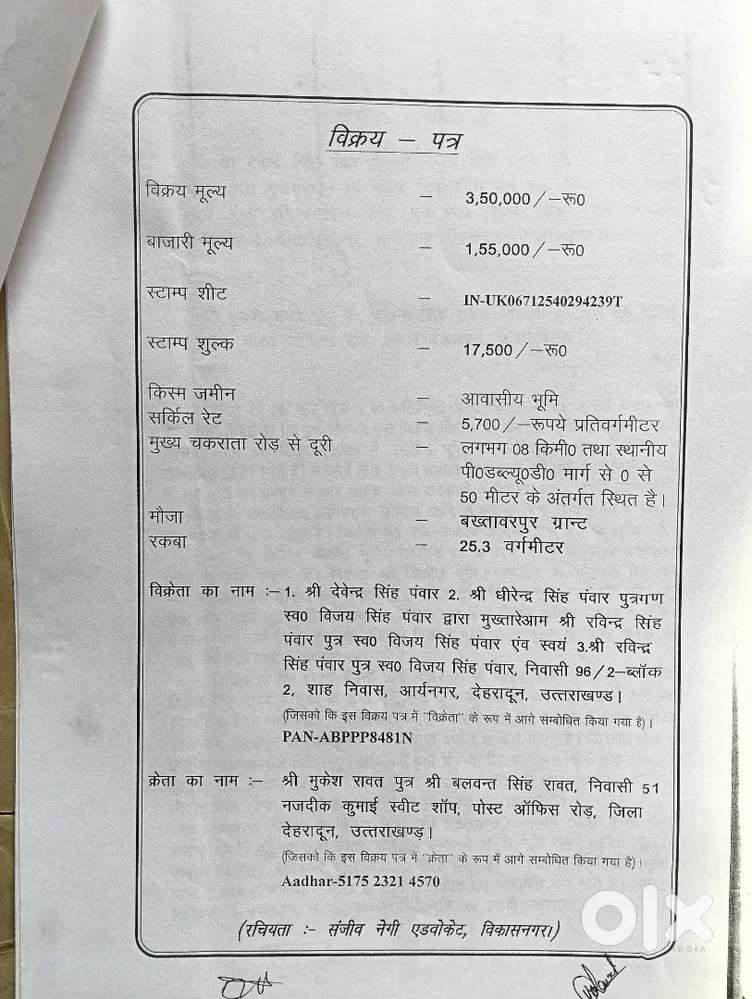 विक्रय – पत्र
विक्रय मूल्य – 3,50,000/–रू0
बाजारी मूल्य – 1,55,000/–रू0
स्टाम्प शीट – IN-UK06712540294239T
स्टाम्प शुल्क – 17,500/–रू0
किस्म जमीन – आवासीय भूमि
सर्किल रेट – 5,700/–रूपये प्रतिवर्गमीटर
मुख्य चकराता रोड़ से दूरी – लगभग 08 किमी0 तथा स्थानीय
पी0डब्ल्यू0डी0 मार्ग से 0 से
50 मीटर के अंतर्गत स्थित है।
मौजा – बख्तावरपुर ग्रान्ट
रकबा – 25.3 वर्गमीटर
विक्रेता का नाम :– 1. श्री देवेन्द्र सिंह पंवार 2. श्री धीरेन्द्र सिंह पंवार पुत्रगण
स्व0 विजय सिंह पंवार द्वारा मुख्तारेआम श्री रविन्द्र सिंह
पंवार पुत्र स्व0 विजय सिंह पंवार एंव स्वयं 3.श्री रविन्द्र
सिंह पंवार पुत्र स्व0 विजय सिंह पंवार, निवासी 96/2–ब्लॉक
2, शाह निवास, आर्यनगर, देहरादून, उत्तराखण्ड।
(जिसको कि इस विक्रय पत्र में "विक्रेता" के रूप में आगे सम्बोधित किया गया है)।
PAN-ABPPP8481N
क्रेता का नाम :– श्री मुकेश रावत पुत्र श्री बलवन्त सिंह रावत, निवासी 51
नजदीक कुमाई स्वीट शॉप, पोस्ट ऑफिस रोड़, जिला
देहरादून, उत्तराखण्ड़।
(जिसको कि इस विक्रय पत्र में "क्रेता" के रूप में आगे सम्बोधित किया गया है)।
Aadhar-5175 2321 4570
(रचियता :– संजीव नेगी एडवोकेट, विकासनगर।)
olx